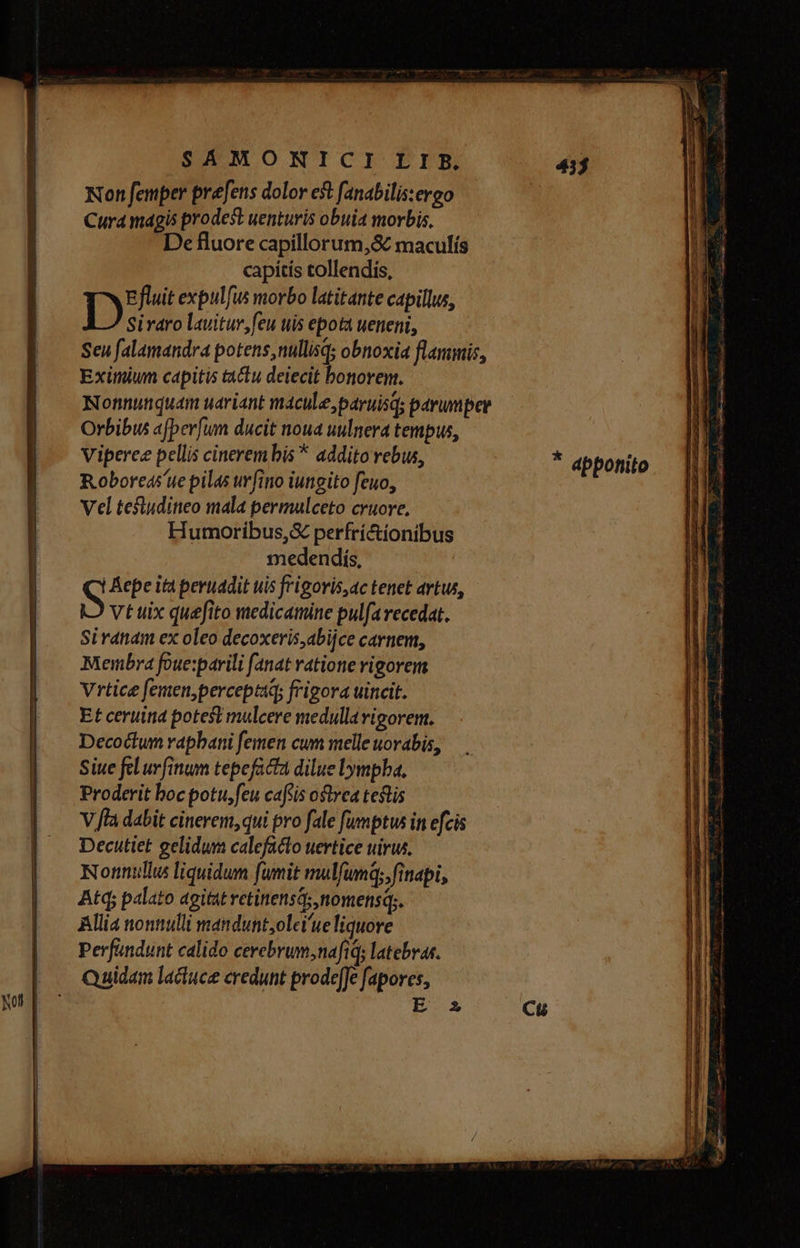 SAMONICI LIB. 435
Non ſemper præſens dolor eſt ſanabilis:ergo
Cura magis prodeſt uenturis obuia morbis.
De fluore capillorum,& maculis
capitis tollendis,
DEfluit expulſus morbo latitante capillus,
Si raro lauitur,ſeu uis epota ueneni,
Seu ſalamandra potens,nullisq́; obnoxia flammis,
Eximium capitis tactu deiecit honorem.
Nonnunquam uariant maculæ,paruisq́; parumper
Orbibus aſperſum ducit noua uulnera tempus,
Vipereæ pellis cinerem his * addito rebus,
* apponito
Roboreas'ue pilas urſino iungito ſeuo,
Vel teſtudineo mala permulceto cruore.
Humoribus,& perfrictionibus
medendis,
SAepe ita peruadit uis frigoris,ac tenet artus,
Vt uix quæſito medicamine pulſa recedat.
Si ranam ex oleo decoxeris,abijce carnem,
Membra foue:parili ſanat ratione rigorem
Vrticæ ſemen,perceptaq́; frigora uincit.
Et ceruina poteſt mulcere medulla rigorem.
Decoctum raphani ſemen cum melle uorabis,
Siue fel urſinum tepefacta dilue lympha.
Proderit hoc potu,ſeu caſsis oſtrea teſtis
Vſta dabit cinerem,qui pro ſale ſumptus in eſcis
Decutiet gelidum calefacto uertice uirus.
Nonnullus liquidum ſumit mulſumq́;,ſinapi,
Atq; palato agitat retinensq́;,uomensq́;.
Allia nonnulli mandunt,olei'ue liquore
Perfundunt calido cerebrum,naſiq́; latebras.
Quidam lactucæ credunt prodeſſe ſapores,
E 2 Cu
Non